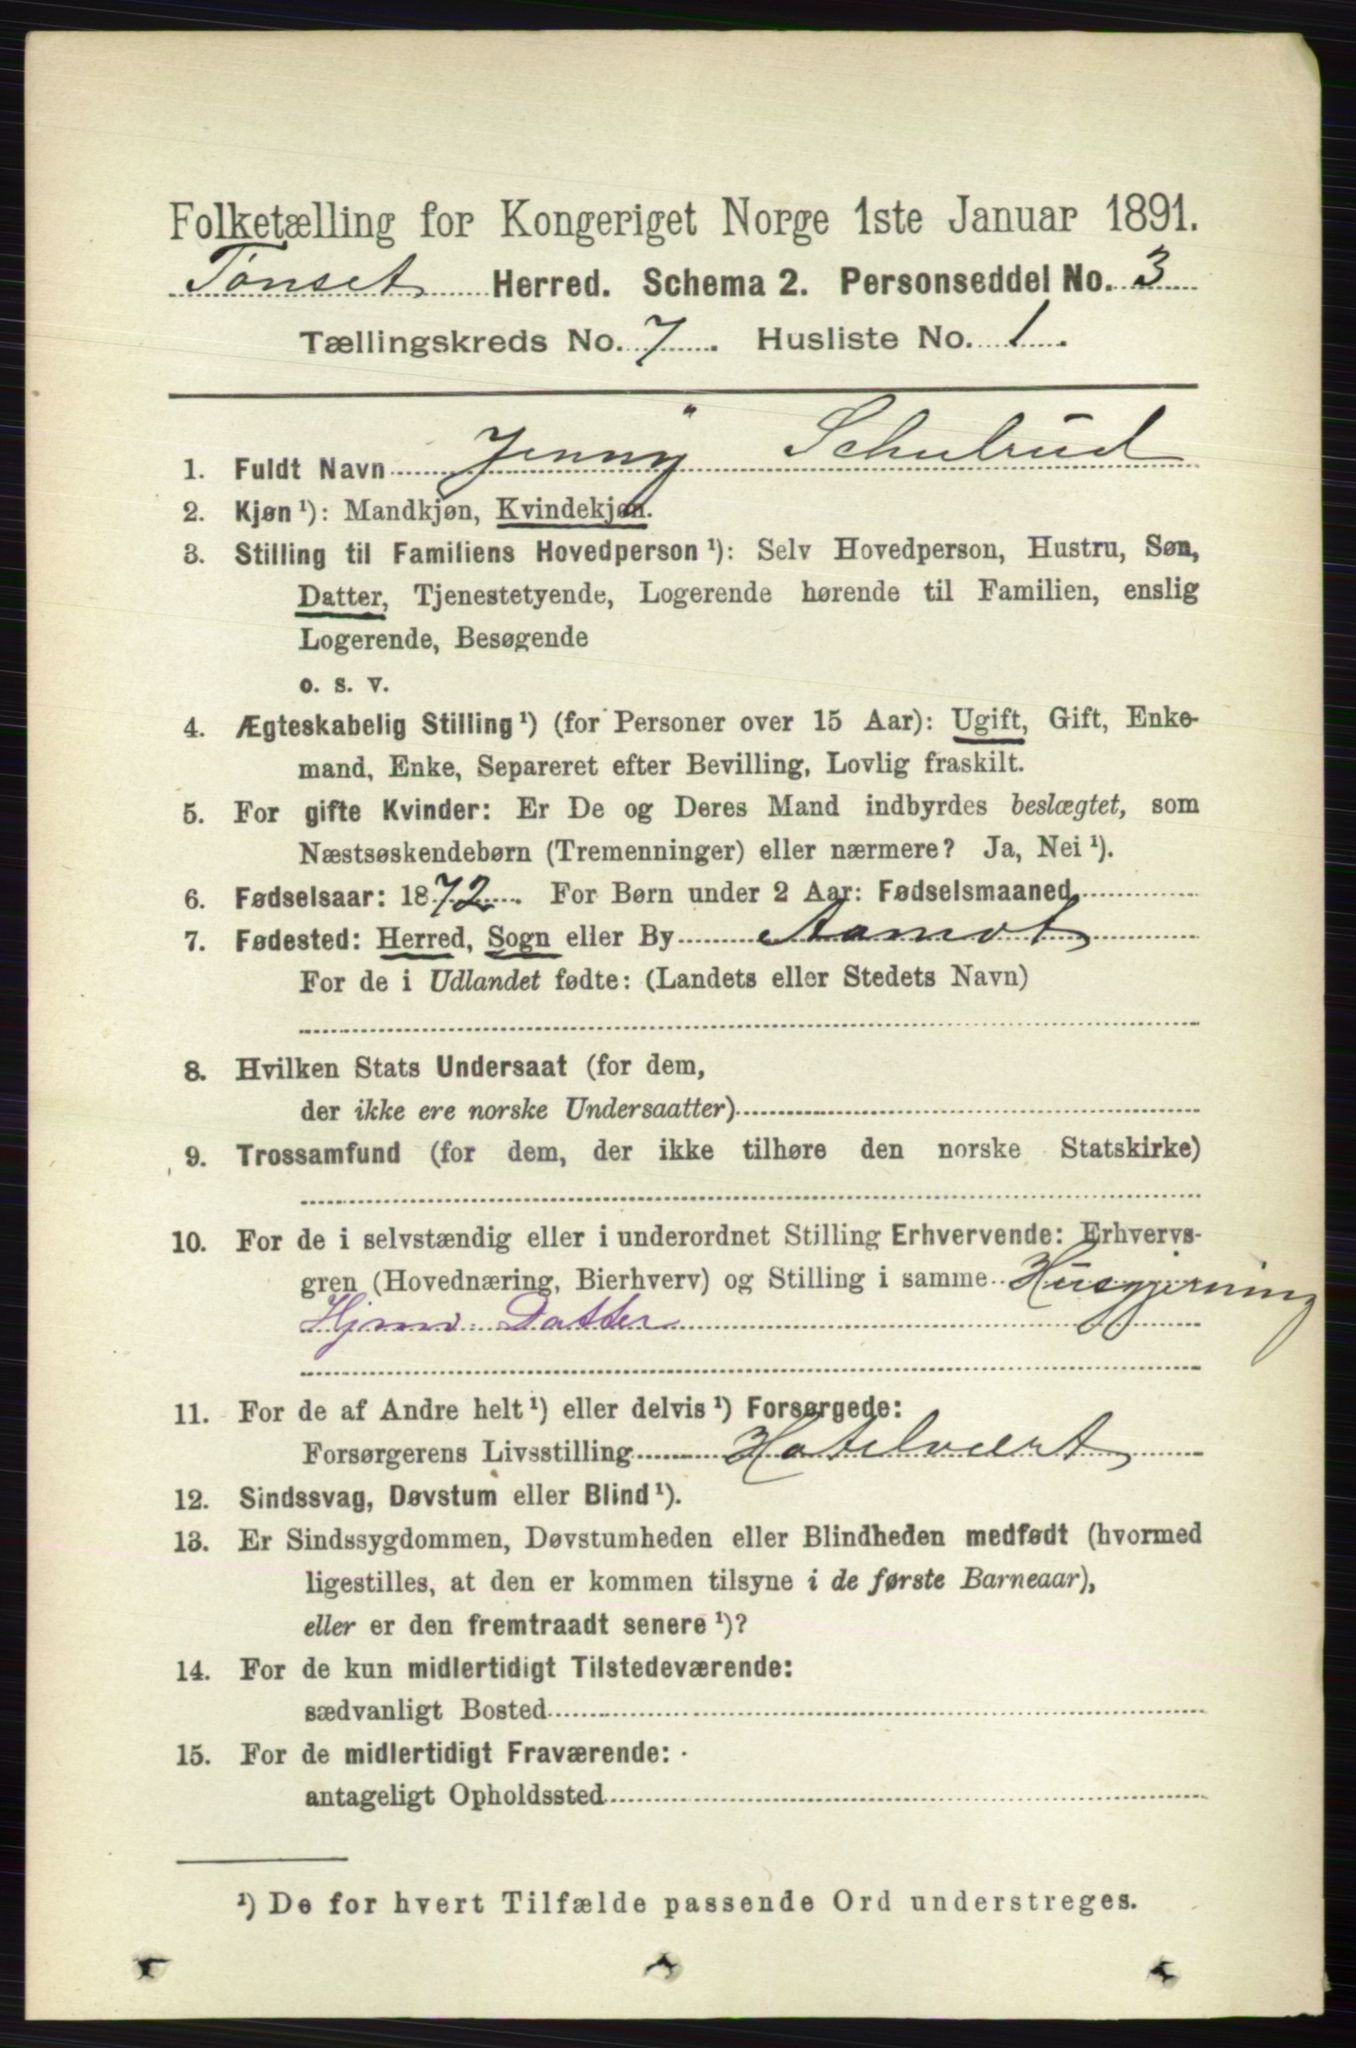 Folketælling for Kongeriget Norge 1ste Januar 1891.
Tønset Herred. Schema 2. Personseddel No. 3
Tællingskreds No. 7. Husliste No. 1.
1. Fuldt Navn Jenny Schulrud
2. Kjøn ¹): Mandkjøn, Kvindekjøn.
3. Stilling til Familiens Hovedperson ¹): Selv Hovedperson, Hustru, Søn,
Datter, Tjenestetyende, Logerende hørende til Familien, enslig
Logerende, Besøgende
o. s. v.
4. Ægteskabelig Stilling ¹) (for Personer over 15 Aar): Ugift, Gift, Enke-
mand, Enke, Separeret efter Bevilling, Lovlig fraskilt.
5. For gifte Kvinder: Er De og Deres Mand indbyrdes beslægtet, som
Næstsøskendebørn (Tremenninger) eller nærmere? Ja, Nei ¹).
6. Fødselsaar: 1872. For Børn under 2 Aar: Fødselsmaaned
7. Fødested: Herred, Sogn eller By Aamot
For de i Udlandet fødte: (Landets eller Stedets Navn)
8. Hvilken Stats Undersaat (for dem,
der ikke ere norske Undersaatter)
9. Trossamfund (for dem, der ikke tilhøre den norske Statskirke)
10. For de i selvstændig eller i underordnet Stilling Erhvervende: Erhvervs-
gren (Hovednæring, Bierhverv) og Stilling i samme Husgjerning
Hjmv. Datter
11. For de af Andre helt ¹) eller delvis ¹) Forsørgede:
Forsørgerens Livsstilling Hotelvært
12. Sindssvag, Døvstum eller Blind ¹).
13. Er Sindssygdommen, Døvstumheden eller Blindheden medfødt (hvormed
ligestilles, at den er kommen tilsyne i de første Barneaar),
eller er den fremtraadt senere ¹)?
14. For de kun midlertidigt Tilstedeværende:
sædvanligt Bosted
15. For de midlertidigt Fraværende:
antageligt Opholdssted
¹) De for hvert Tilfælde passende Ord understreges.